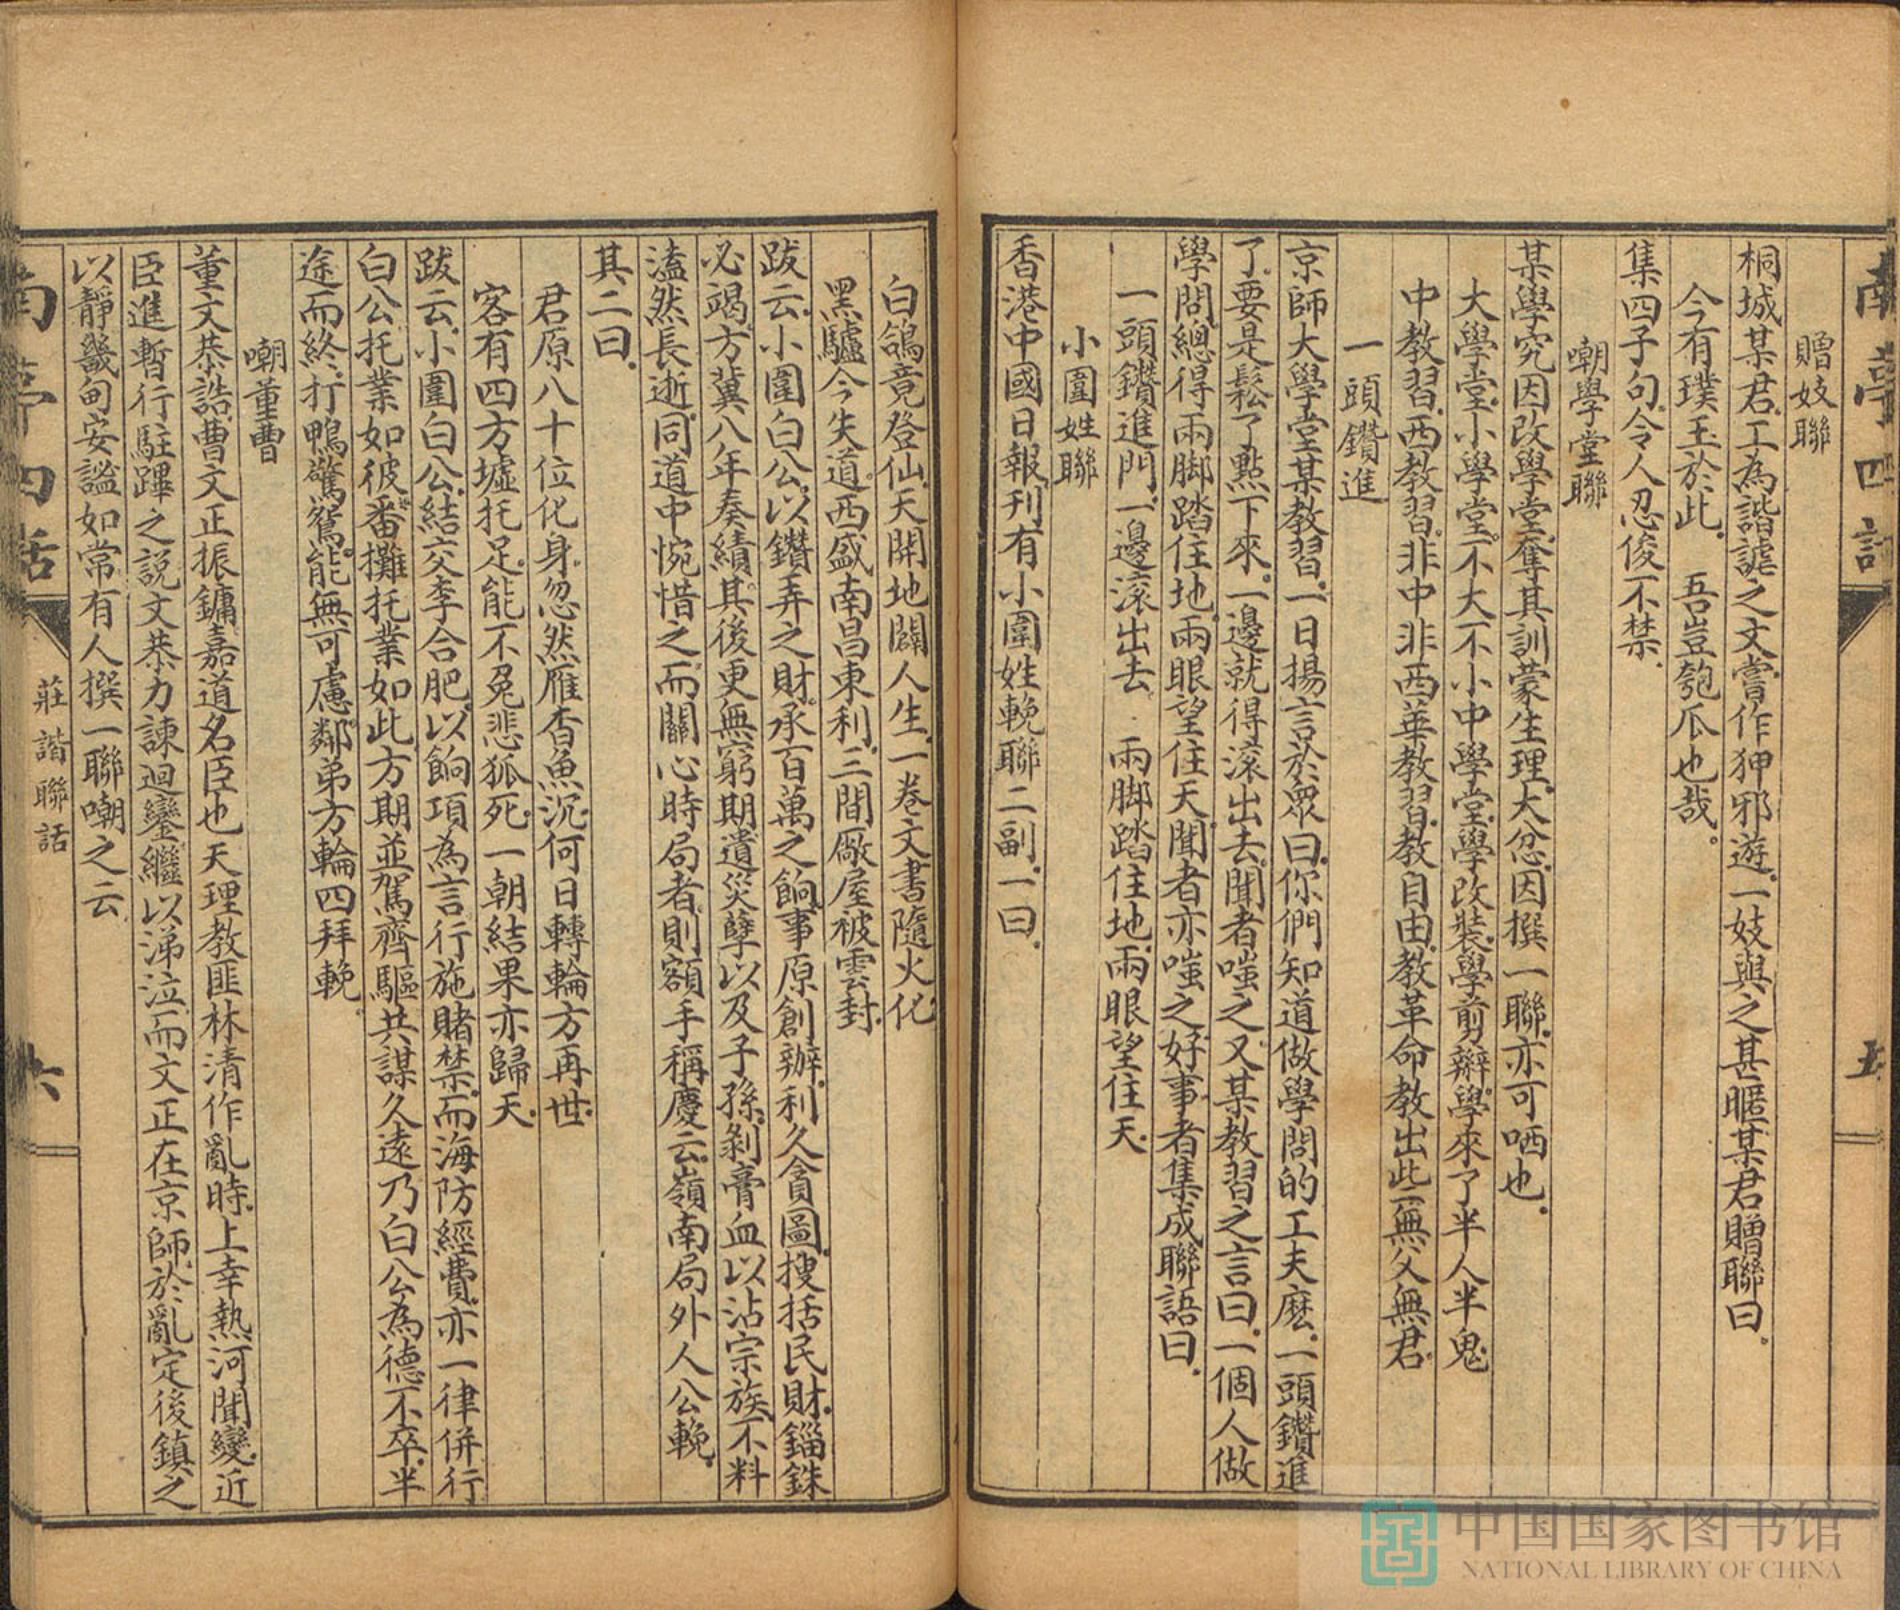 南亭四話
五
贈妓聯
桐城某君工為諧謔之文嘗作狎邪遊一妓與之甚暱某君贈聯曰
今有璞玉於此　吾豈匏瓜也哉
集四子句令人忍俊不禁
嘲學堂聯
某學究因改學堂奪其訓蒙生理大忿因撰一聯亦可哂也
大學堂小學堂不大不小中學堂學改裝學剪辮學來了半人半鬼
中教習西教習非中非西華教習教自由教革命教出此無父無君
一頭鑽進
京師大學堂某教習一日揚言於眾曰你們知道做學問的工夫麽一頭鑽進
了要是鬆了點下來一邊就得滾出去聞者嗤之又某教習之言曰一個人做
學問總得兩脚踏住地兩眼望住天聞者亦嗤之好事者集成聯語曰
一頭鑽進門一邊滾出去　兩脚踏住地兩眼望住天
小圍姓聯
香港中國日報刊有小圍姓輓聯二副一曰
白鴿竟登仙天開地闢人生一卷文書隨火化
黑驢今失道西盛南昌東利三間廠屋被雲封
跋云小圍白公以鑽弄之財承百萬之餉事原創辦利久貪圖搜括民財錙銖
必竭方冀八年奏績其後更無窮期遺災孽以及子孫剝膏血以沾宗族不料
溘然長逝同道中惋惜之而關心時局者則額手稱慶云嶺南局外人公輓
其二曰
君原八十位化身忽然雁杳魚沉何日轉輪方再世
客有四方墟托足能不兔悲狐死一朝結果亦歸天
跋云小圍白公結交李合肥以餉項為言行施賭禁而海防經費亦一律併行
白公托業如彼番攤托業如此方期並駕齊驅共謀久遠乃白公為德不卒半
途而終打鴨驚鴛能無可慮鄰弟方輪四拜輓
嘲董曹
董文恭誥曹文正振鏞嘉道名臣也天理教匪林清作亂時上幸熱河聞變近
臣進暫行駐蹕之說文恭力諫迴鑾繼以涕泣而文正在京師於亂定後鎮之
以靜畿甸安謐如常有人撰一聯嘲之云
南亭四話
莊諧聯話
六
中国国家图书馆
NATIONAL LIBRARY OF CHINA